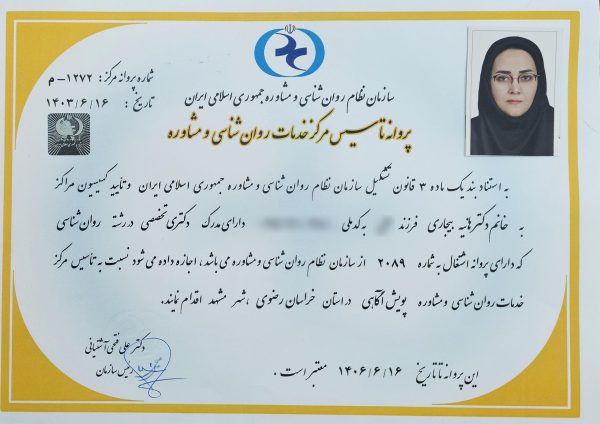 شماره پروانه مرکز: ۱۲۷۲-م
تاریخ : ۱۴۰۳/۶/۱۶
سازمان نظام روان شناسی و مشاوره جمهوری اسلامی ایران
پروانه تاسیس مرکز خدمات روان شناسی و مشاوره
به استناد بند یک ماده ۳ قانون تشکیل سازمان نظام روان شناسی و مشاوره جمهوری اسلامی ایران و تأیید کمیسیون مراکز
به خانم دکتر هانیه بیجاری فرزند به کدملی دارای مدرک دکتری تخصصی در رشته روان شناسی
که دارای پروانه اشتغال به شماره ۲۰۸۹ از سازمان نظام روان شناسی و مشاوره می باشد ، اجازه داده می شود نسبت به تاسیس مرکز
خدمات روان شناسی و مشاوره پویش آگاهی در استان خراسان رضوی ، شهر مشهد اقدام نمایند.
این پروانه تا تاریخ ۱۴۰۶/۶/۱۶ معتبر است .
دکتر علی فتحی آشتیانی
رئیس سازمان